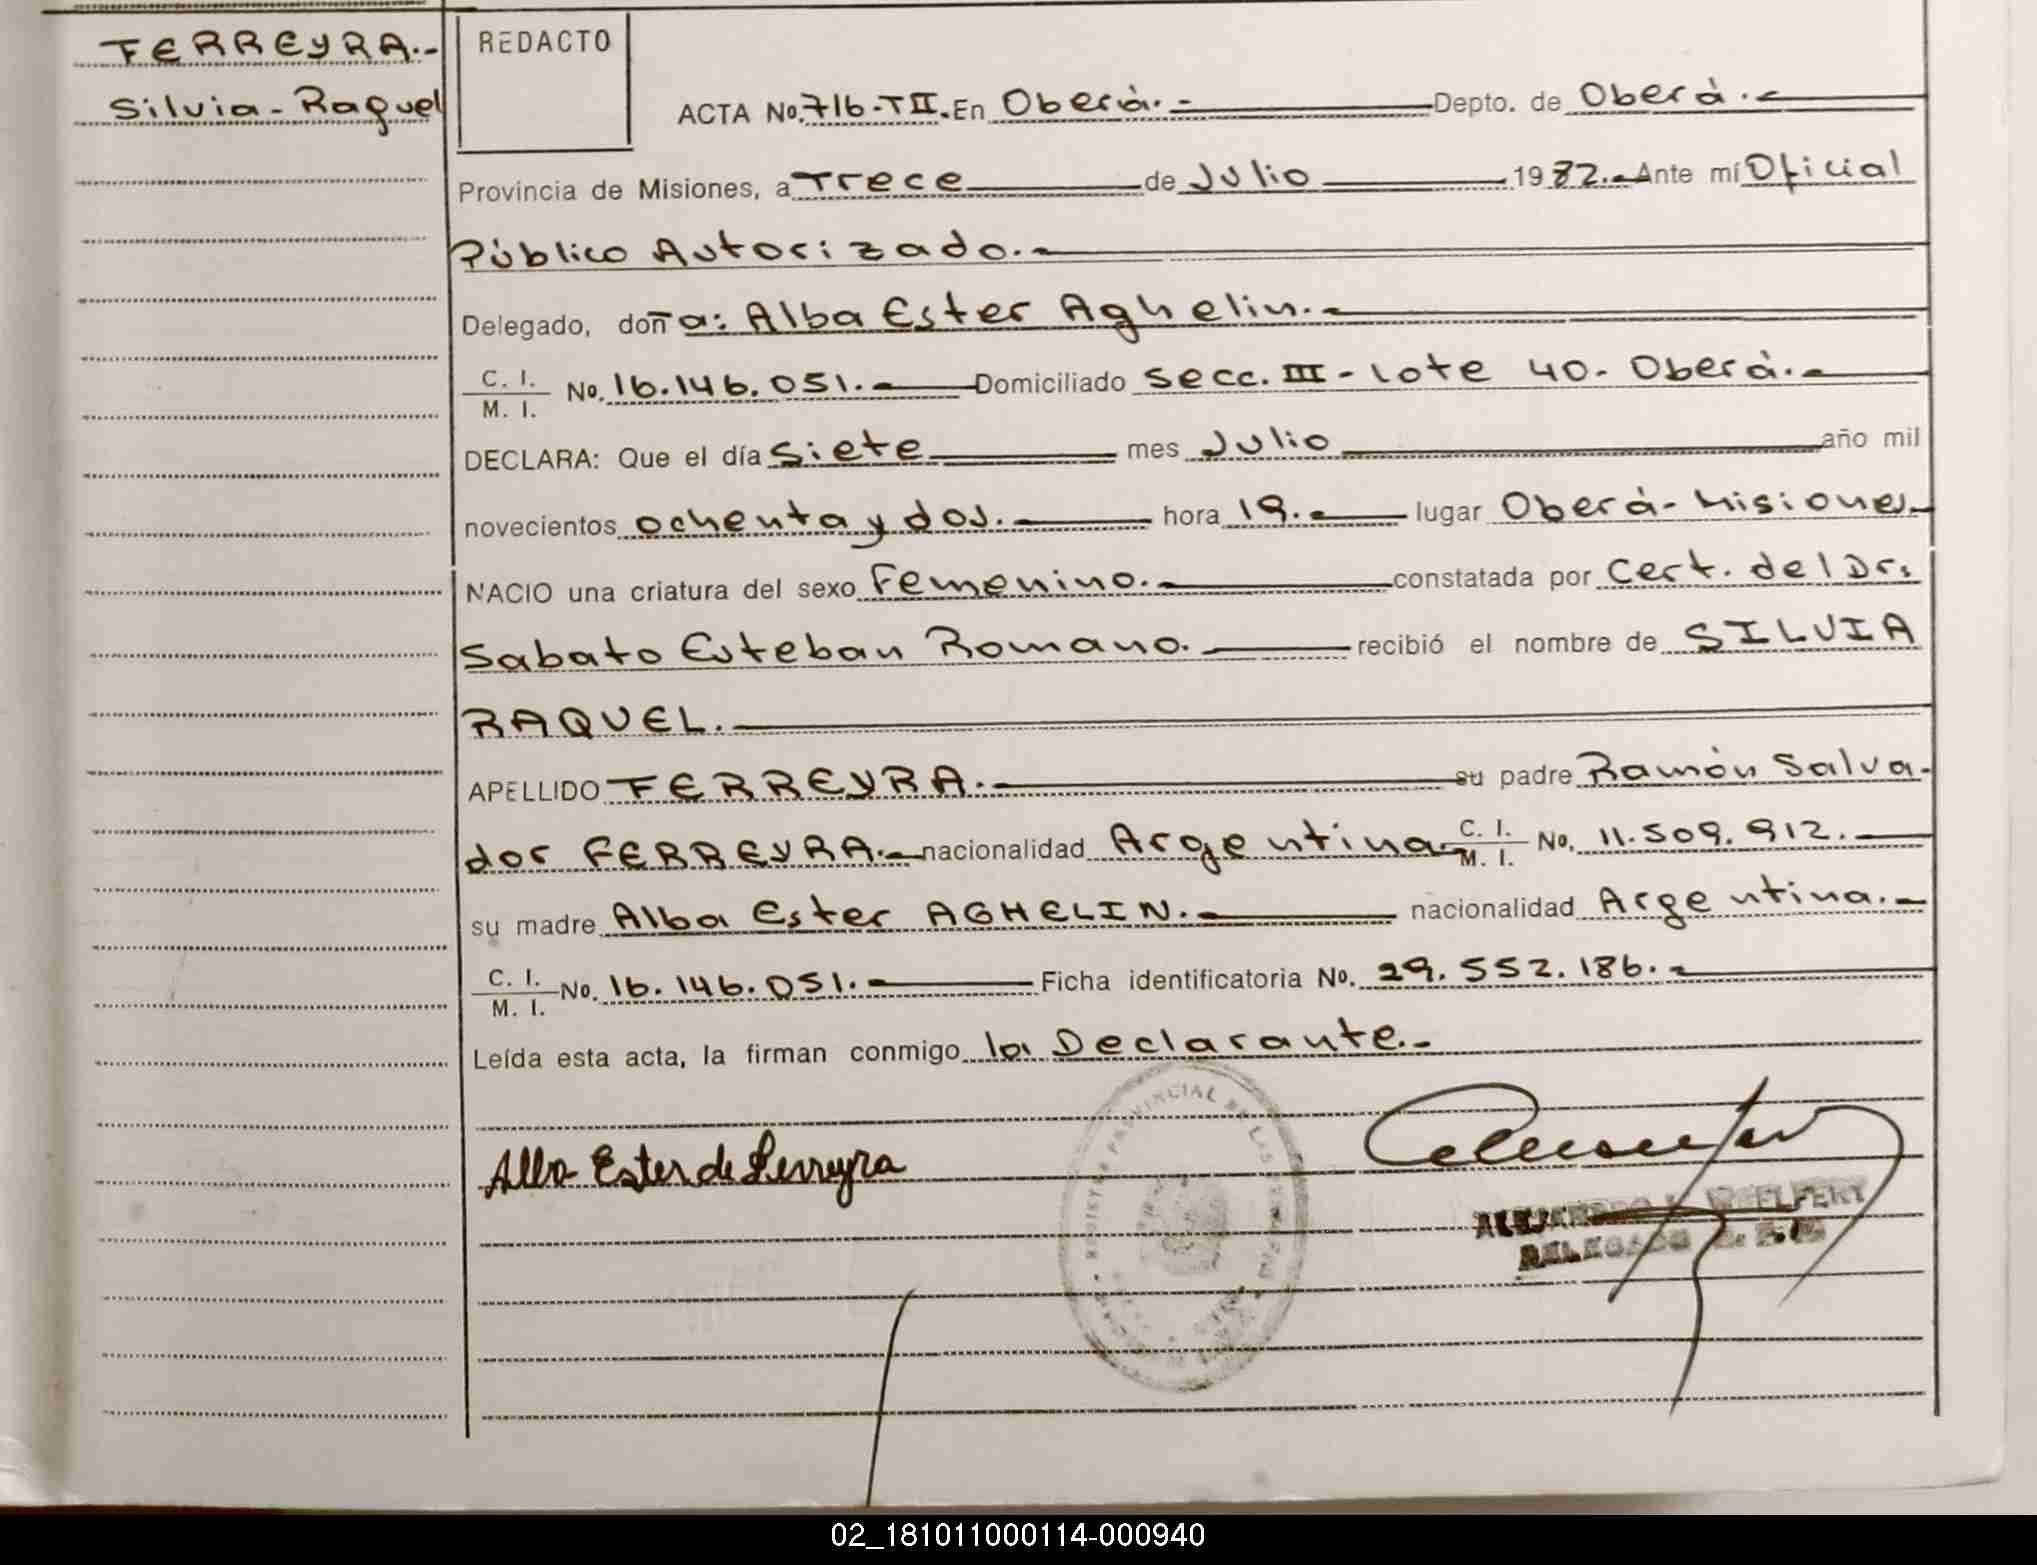 FERREYRA.-
Silvia-Raquel
REDACTO
ACTA No. 716-TII. En Oberá.- Depto. de Oberá.-
Provincia de Misiones, a Trece de Julio 1982.- Ante mí Oficial
Público Autorizado.-
Delegado, doña: Alba Ester Aghelin.-
C. I.
M. I. No. 16.146.051.- Domiciliado Secc. III - Lote 40. Oberá.-
DECLARA: Que el día siete mes Julio año mil
novecientos ochenta y dos.- hora 19.- lugar Oberá-Misiones-
NACIO una criatura del sexo Femenino.- constatada por Cert. del Dr.
Sabato Esteban Romano.- recibió el nombre de SILVIA
RAQUEL.-
APELLIDO FERREYRA.- su padre Ramón Salva-
dor FERREYRA.- nacionalidad Argentina C. I.
M. I. No. 11.509.912.-
su madre Alba Ester AGHELIN.- nacionalidad Argentina.-
C. I.
M. I. No. 16.146.051.- Ficha identificatoria No. 29.552.186.-
Leída esta acta, la firman conmigo la Declarante.-
PROVINCIAL DE LAS
Alba Ester de Ferreyra
DELEGADO
02_181011000114-000940